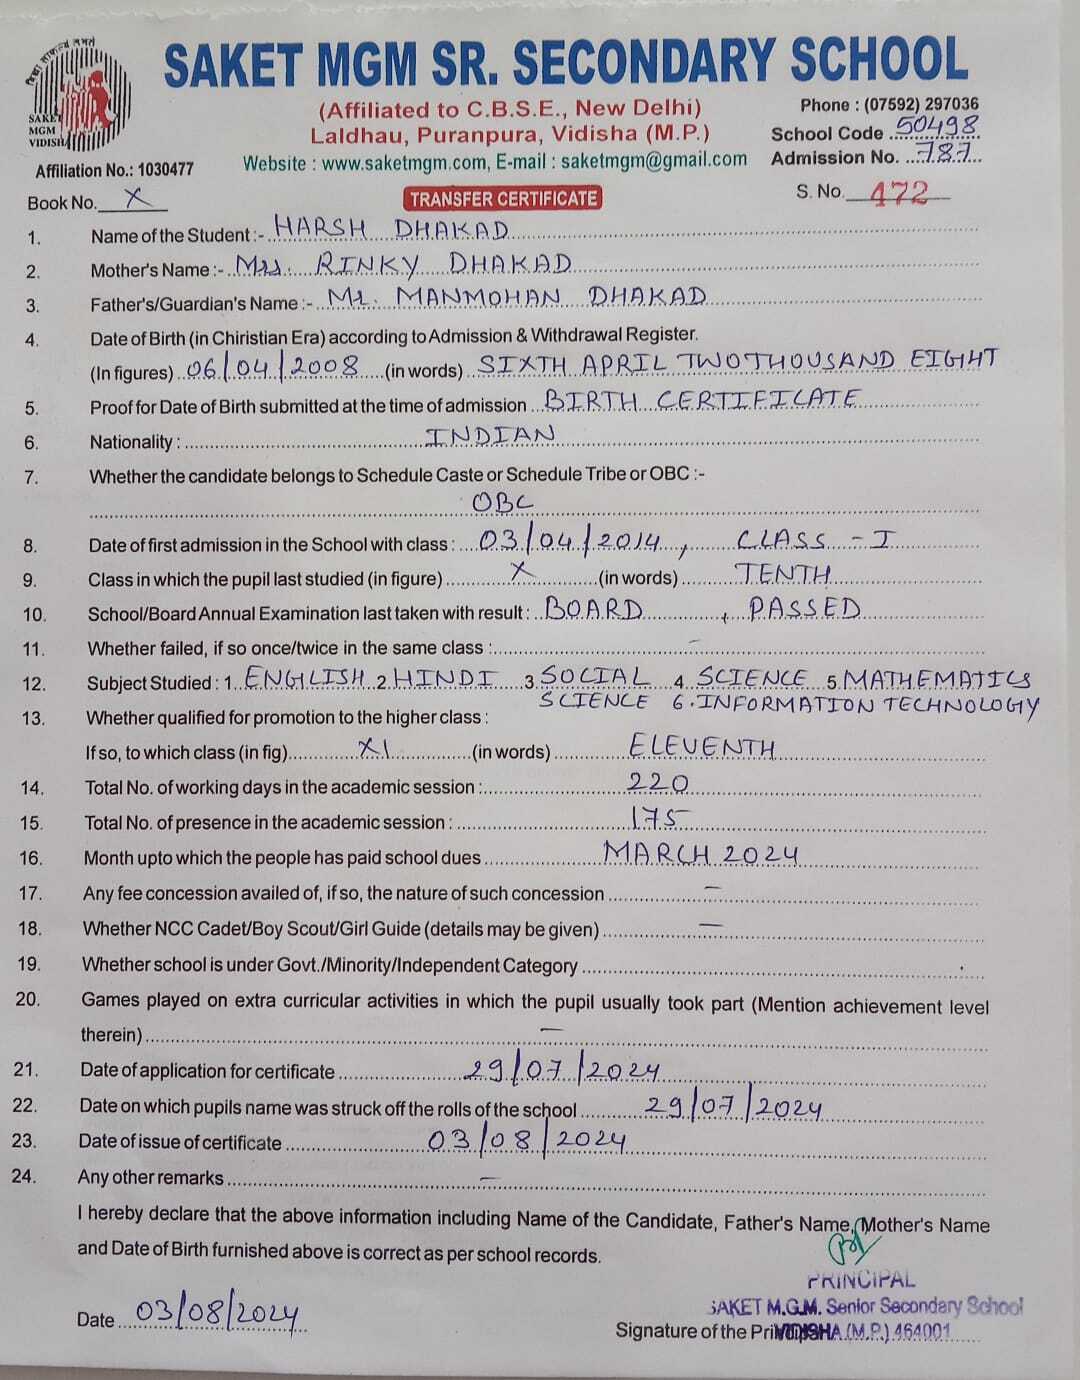 SAKET MGM SR. SECONDARY SCHOOL
(Affiliated to C.B.S.E., New Delhi)
Laldhau, Puranpura, Vidisha (M.P.)
Website : www.saketmgm.com, E-mail : saketmgm@gmail.com
SAKET
MGM
VIDISHA
Affiliation No.: 1030477
Phone : (07592) 297036
School Code 50498
Admission No. 787
Book No. X
TRANSFER CERTIFICATE
S. No. 472
1. Name of the Student :- HARSH DHAKAD
2. Mother's Name :- Mrs. RINKY DHAKAD
3. Father's/Guardian's Name :- Mr. MANMOHAN DHAKAD
4. Date of Birth (in Chiristian Era) according to Admission & Withdrawal Register.
(In figures) 06/04/2008 (in words) SIXTH APRIL TWO THOUSAND EIGHT
5. Proof for Date of Birth submitted at the time of admission BIRTH CERTIFICATE
6. Nationality : INDIAN
7. Whether the candidate belongs to Schedule Caste or Schedule Tribe or OBC :-
OBC
8. Date of first admission in the School with class : 03/04/2014, CLASS - I
9. Class in which the pupil last studied (in figure) X (in words) TENTH
10. School/Board Annual Examination last taken with result : BOARD, PASSED
11. Whether failed, if so once/twice in the same class : -
12. Subject Studied : 1. ENGLISH 2 HINDI 3 SOCIAL 4 SCIENCE 5 MATHEMATICS
SCIENCE 6. INFORMATION TECHNOLOGY
13. Whether qualified for promotion to the higher class :
If so, to which class (in fig) XI (in words) ELEVENTH
14. Total No. of working days in the academic session : 220
15. Total No. of presence in the academic session : 175
16. Month upto which the people has paid school dues MARCH 2024
17. Any fee concession availed of, if so, the nature of such concession -
18. Whether NCC Cadet/Boy Scout/Girl Guide (details may be given) -
19. Whether school is under Govt./Minority/Independent Category
20. Games played on extra curricular activities in which the pupil usually took part (Mention achievement level
therein) -
21. Date of application for certificate 29/07/2024
22. Date on which pupils name was struck off the rolls of the school 29/07/2024
23. Date of issue of certificate 03/08/2024
24. Any other remarks -
I hereby declare that the above information including Name of the Candidate, Father's Name, Mother's Name
and Date of Birth furnished above is correct as per school records.
PRINCIPAL
SAKET M.G.M. Senior Secondary School
VIDISHA (M.P.) 464001
Date 03/08/2024
Signature of the Principal